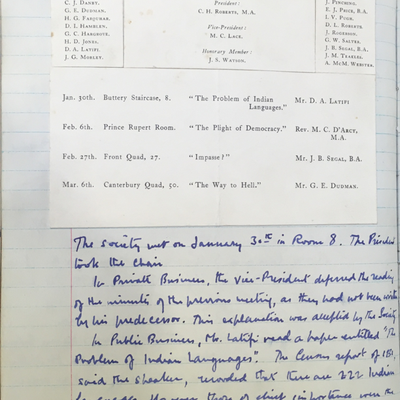 C. J. DANBY,
G. E. DUDMAN,
H. G. FARQUHAR.
D. I. HAMBLEN,
G. C. HARGROTE.
H. D. JONES.
D. A. LATIFI
J. G. MORLEY.
President:
C. H. ROBERTS, M.A.
Vice-President:
M. C. LACE.
Honorary Member:
J. S. WATSON.
J. PINCHING.
E. J. PRICE, B.A.
I. V. PUGH.
D. L. ROBERTS
J. ROGERSON.
G. W. SALTER.
J. B. SEGAL, B.A.
J. M. TEAKERS.
A. MCM. WEBSTER.
Jan. 30th. Buttery Staircase, 8. "The Problem of Indian Languages." Mr. D. A. LATIFI
Feb. 6th. Prince Rupert Room. "The Plight of Democracy." Rev. M. C. D'ARCY, M.A.
Feb. 27th. Front Quad, 27. "Impasse?" Mr. J. B. SEGAL, B.A.
Mar. 6th. Canterbury Quad, 50. "The Way to Hell." Mr. G. E. DUDMAN.
The society met on January 30th in Room 8. The President
took the Chair
In Private Business, the Vice-President deferred the reading
of the minutes of the previous meeting, as they had not been written
by his predecessor. This explanation was accepted by the Society
In Public Business, Mr. Latifi read a paper entitled "The
Problem of Indian Languages". The Census report of
said the speaker, recorded that there are 222 Indian
languages. However those of chief importance were the